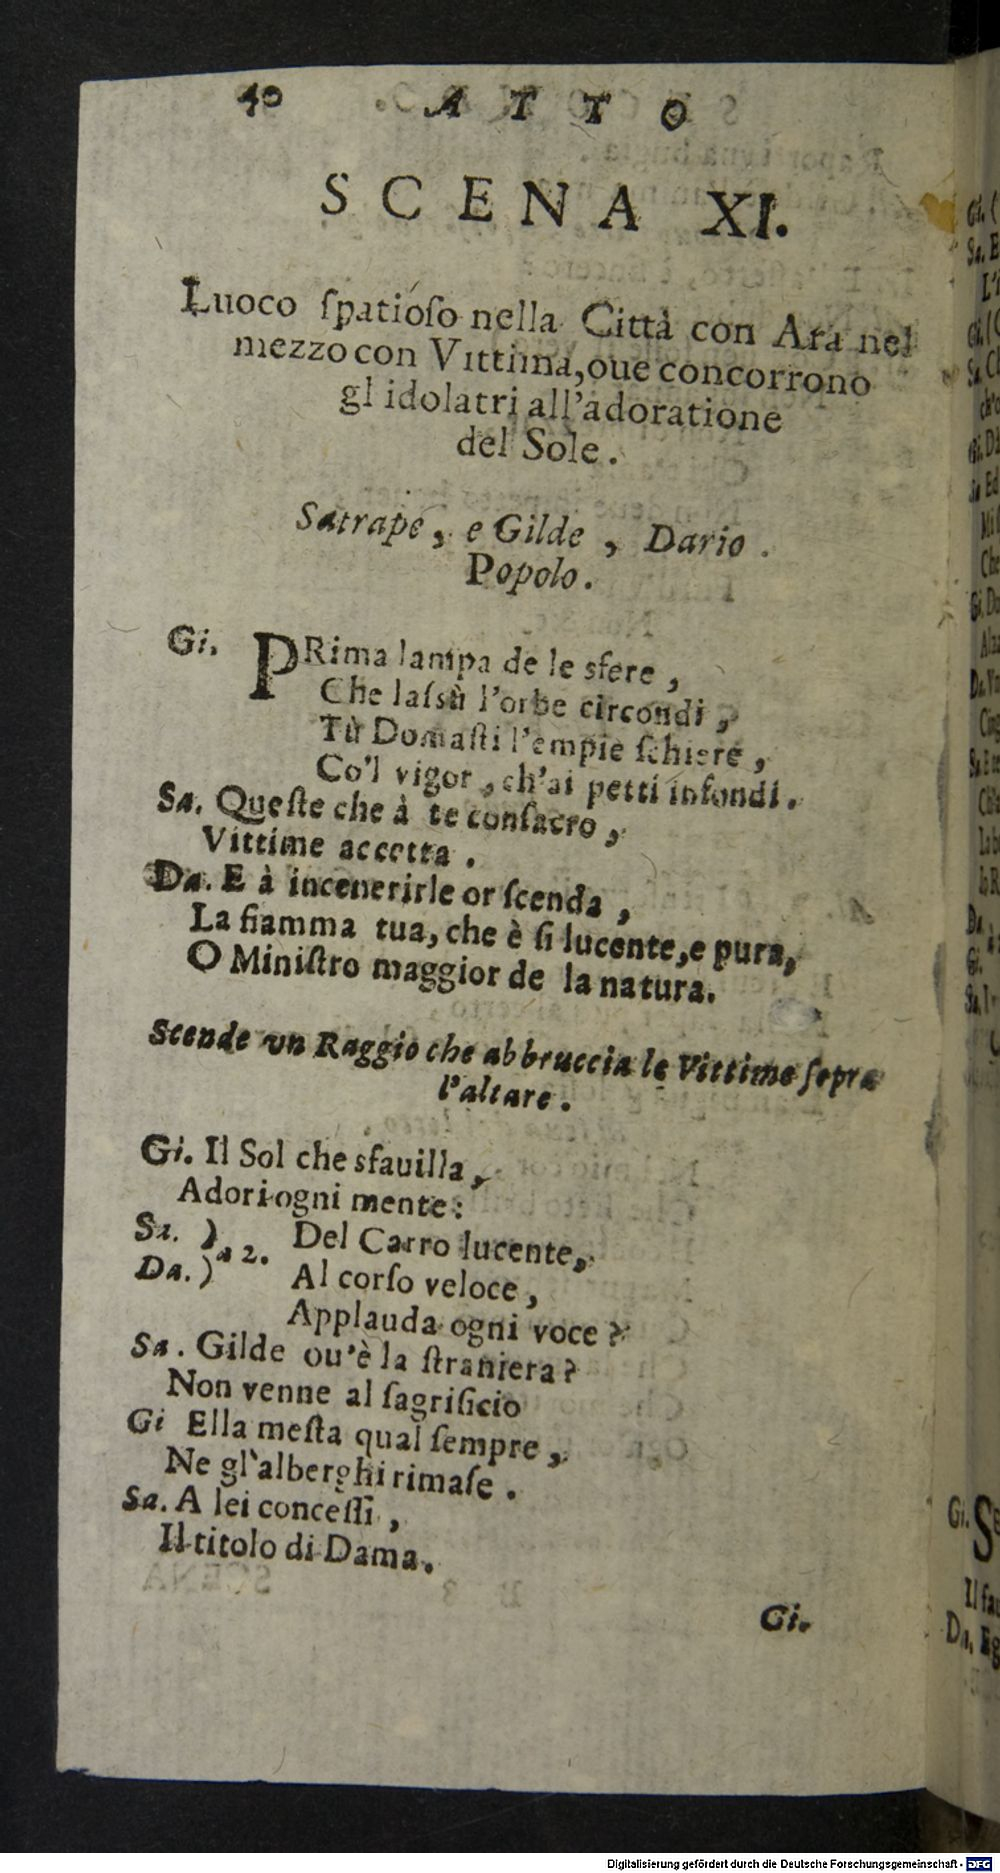 40 ATTO
SCENA XI.
Luoco ſpatioſo nella Città con Ara nel
mezzo con Vittima, oue concorrono
gl idolatri all'adoratione
del Sole.
Satrape, e Gilde, Dario.
Popolo.
Gi. PRima lampa de le sfere,
Che laſsù l'orbe circondi,
Tù Domaſti l'empie ſchiere,
Co'l vigor, ch'ai petti infondi.
Sa. Queſte che à te conſacro,
Vittime accetta.
Da. E à incenerirle or ſcenda,
La fiamma tua, che è ſi lucente, e pura,
O Miniſtro maggior de la natura.
Scende un Raggio che abbruccia le Vittime ſopra
l'altare.
Gi. Il Sol che sfauilla,
Adori ogni mente:
Sa. ) a 2. Del Carro lucente,
Da. ) Al corſo veloce,
Applauda ogni voce?
Sa. Gilde ou'è la ſtraniera?
Non venne al ſagrificio
Gi Ella meſta qual ſempre,
Ne gl'alberghi rimaſe.
Sa. A lei conceſſi,
Il titolo di Dama.
Gi.
Digitalisierung gefördert durch die Deutsche Forschungsgemeinschaft - DFG